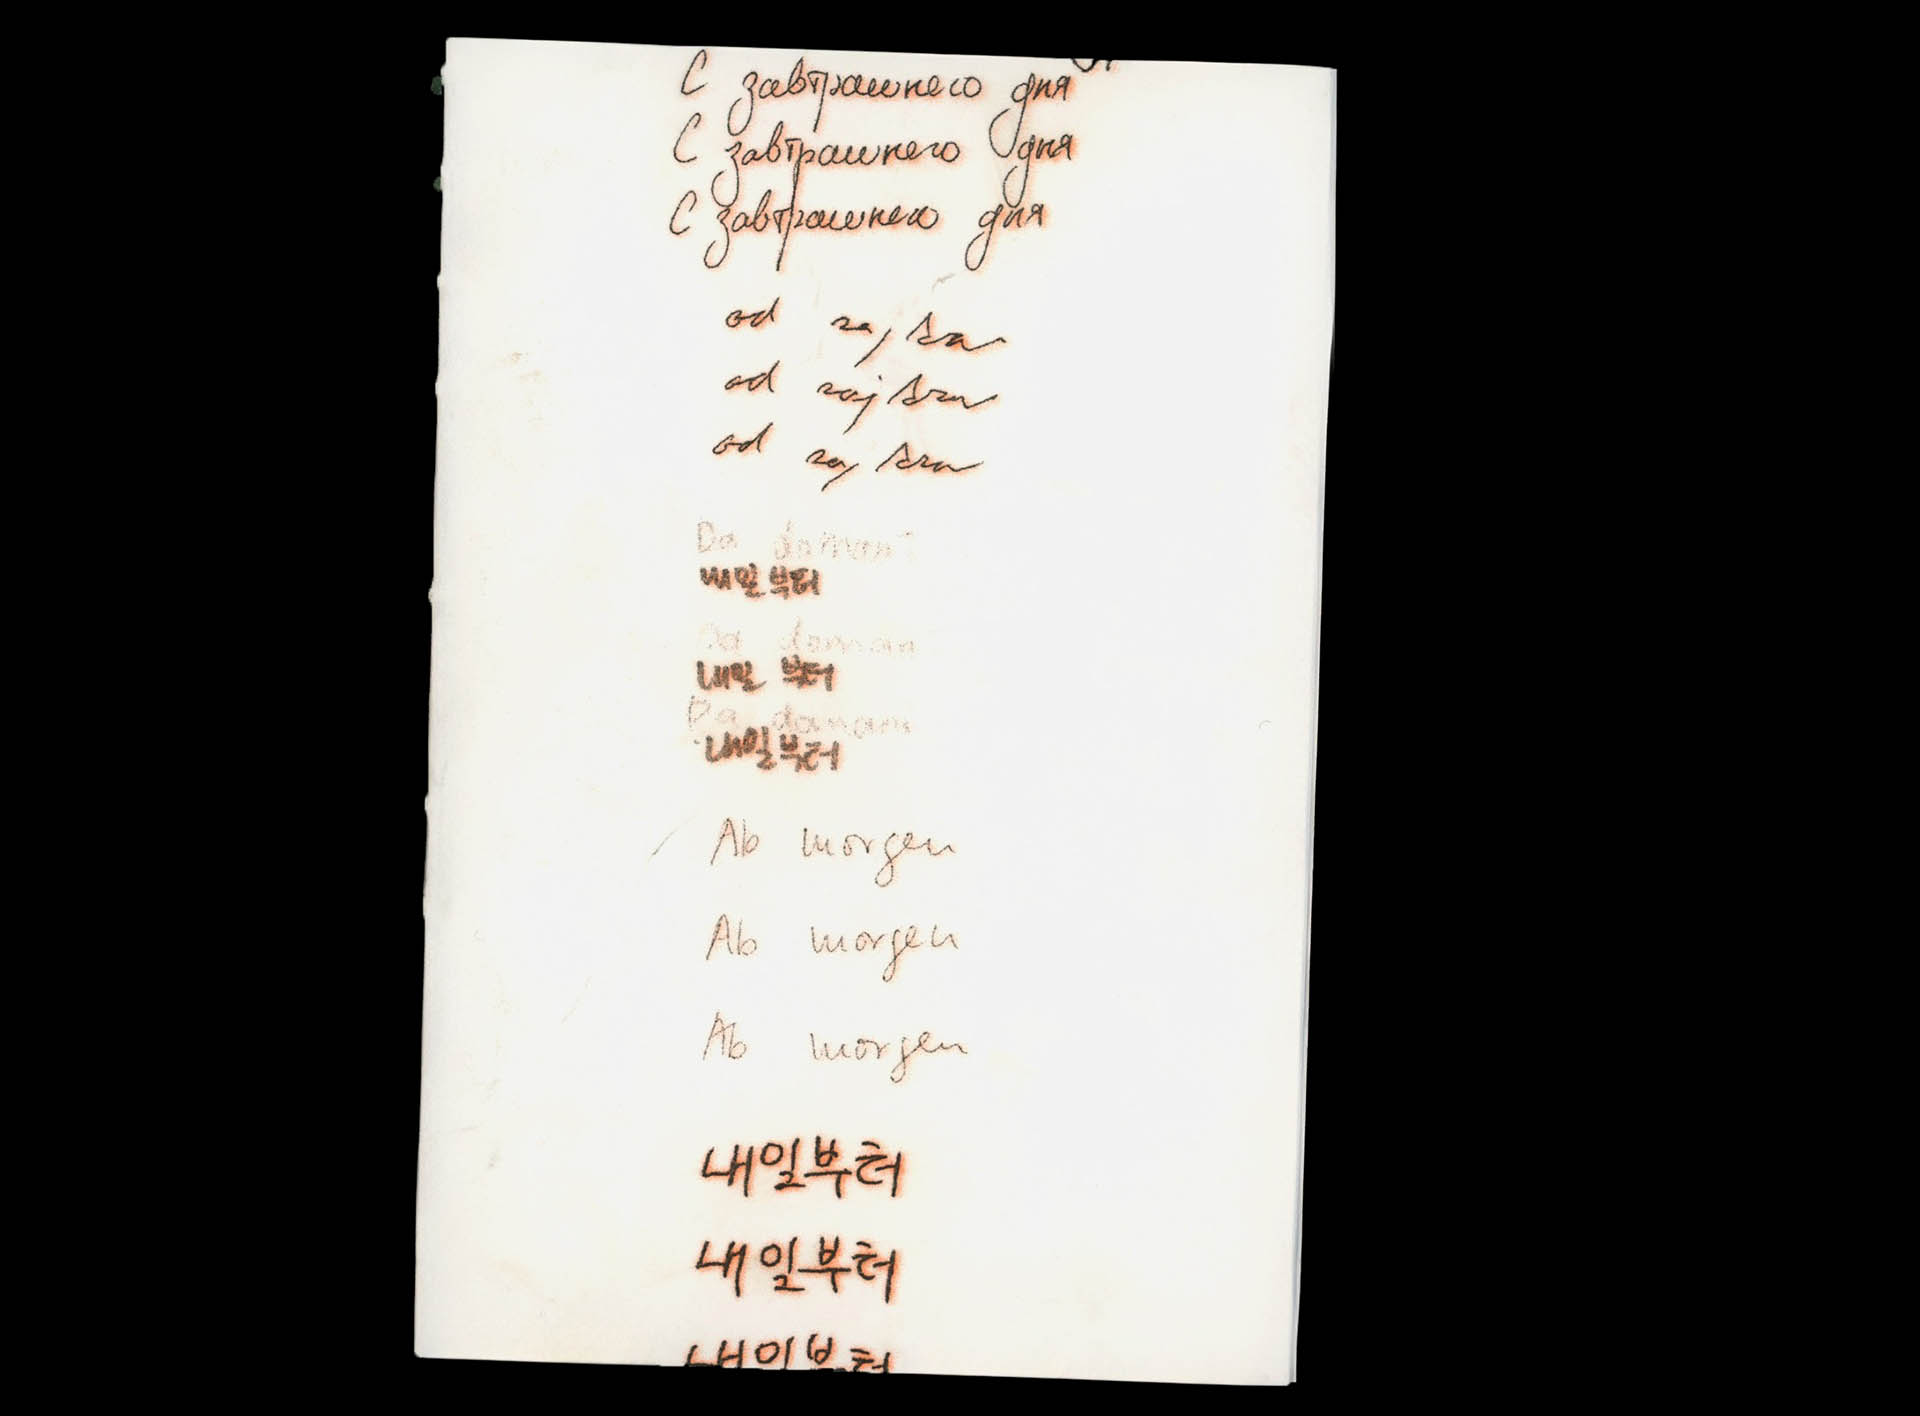 С завтрашнего дня
С завтрашнего дня
С завтрашнего дня
od zajtra
od zajtra
od zajtra
Da domani
내일부터
Da doman
내일 부터
Da domani
내일부터
Ab morgen
Ab morgen
Ab morgen
내일부터
내일부터
내일부터